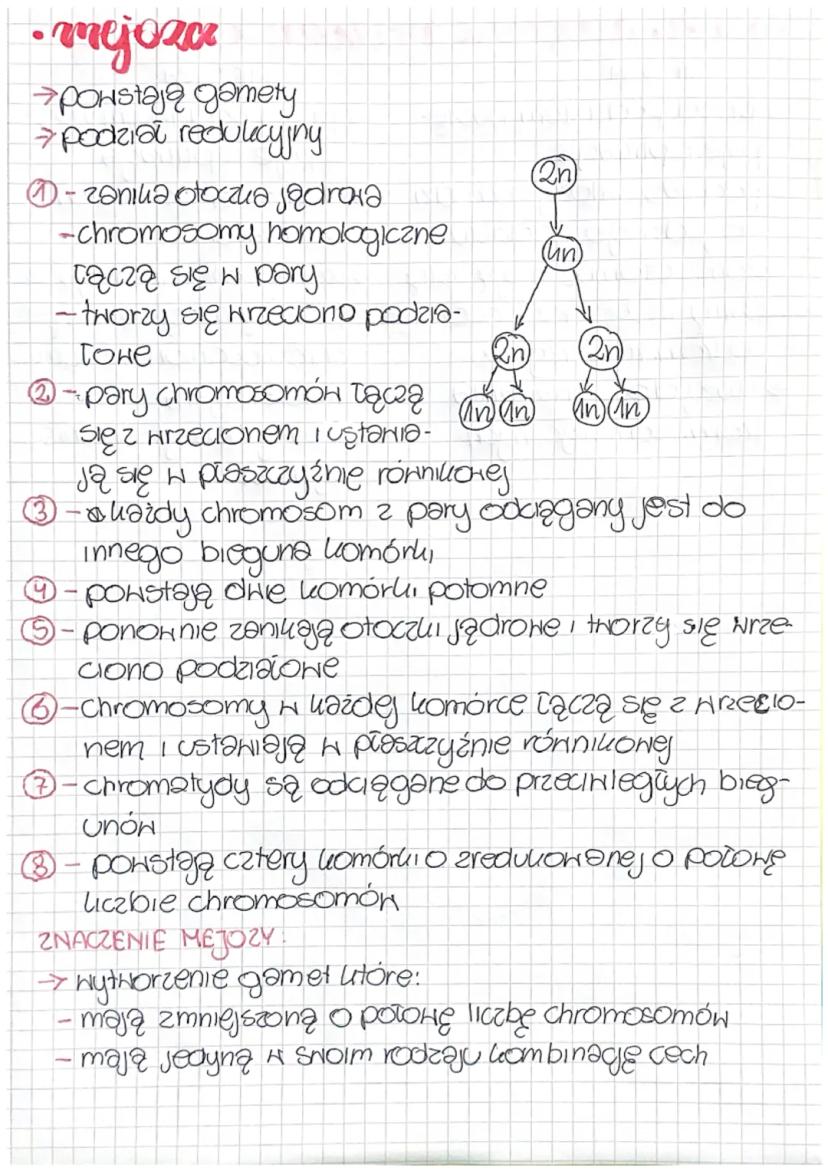 • mejoza
→ powstają gamety
→ podział redukcyjny
① - zanika otoczka jądrowa
- chromosomy homologiczne
łączą się w pary
- tworzy się wrzeciono podzia-
łowe
2n
4n
2n 2n
1n 1n 1n 1n
② - pary chromosomów łączą
się z wrzecionem i ustawia-
ją się w płaszczyźnie równikowej
③ - każdy chromosom z pary odciągany jest do
innego bieguna komórki
④ - powstają dwie komórki potomne
⑤ - ponownie zanikają otoczki jądrowe i tworzy się wrze-
ciono podziałowe
⑥ - chromosomy w każdej komórce łączą się z wrzecio-
nem i ustawiają w płaszczyźnie równikowej
⑦ - chromatydy są odciągane do przeciwległych bieg-
unów
⑧ - powstają cztery komórki o zredukowanej o połowę
liczbie chromosomów
ZNACZENIE MEJOZY:
→ wytworzenie gamet które:
- mają zmniejszoną o połowę liczbę chromosomów
- mają jedyną w swoim rodzaju kombinację cech